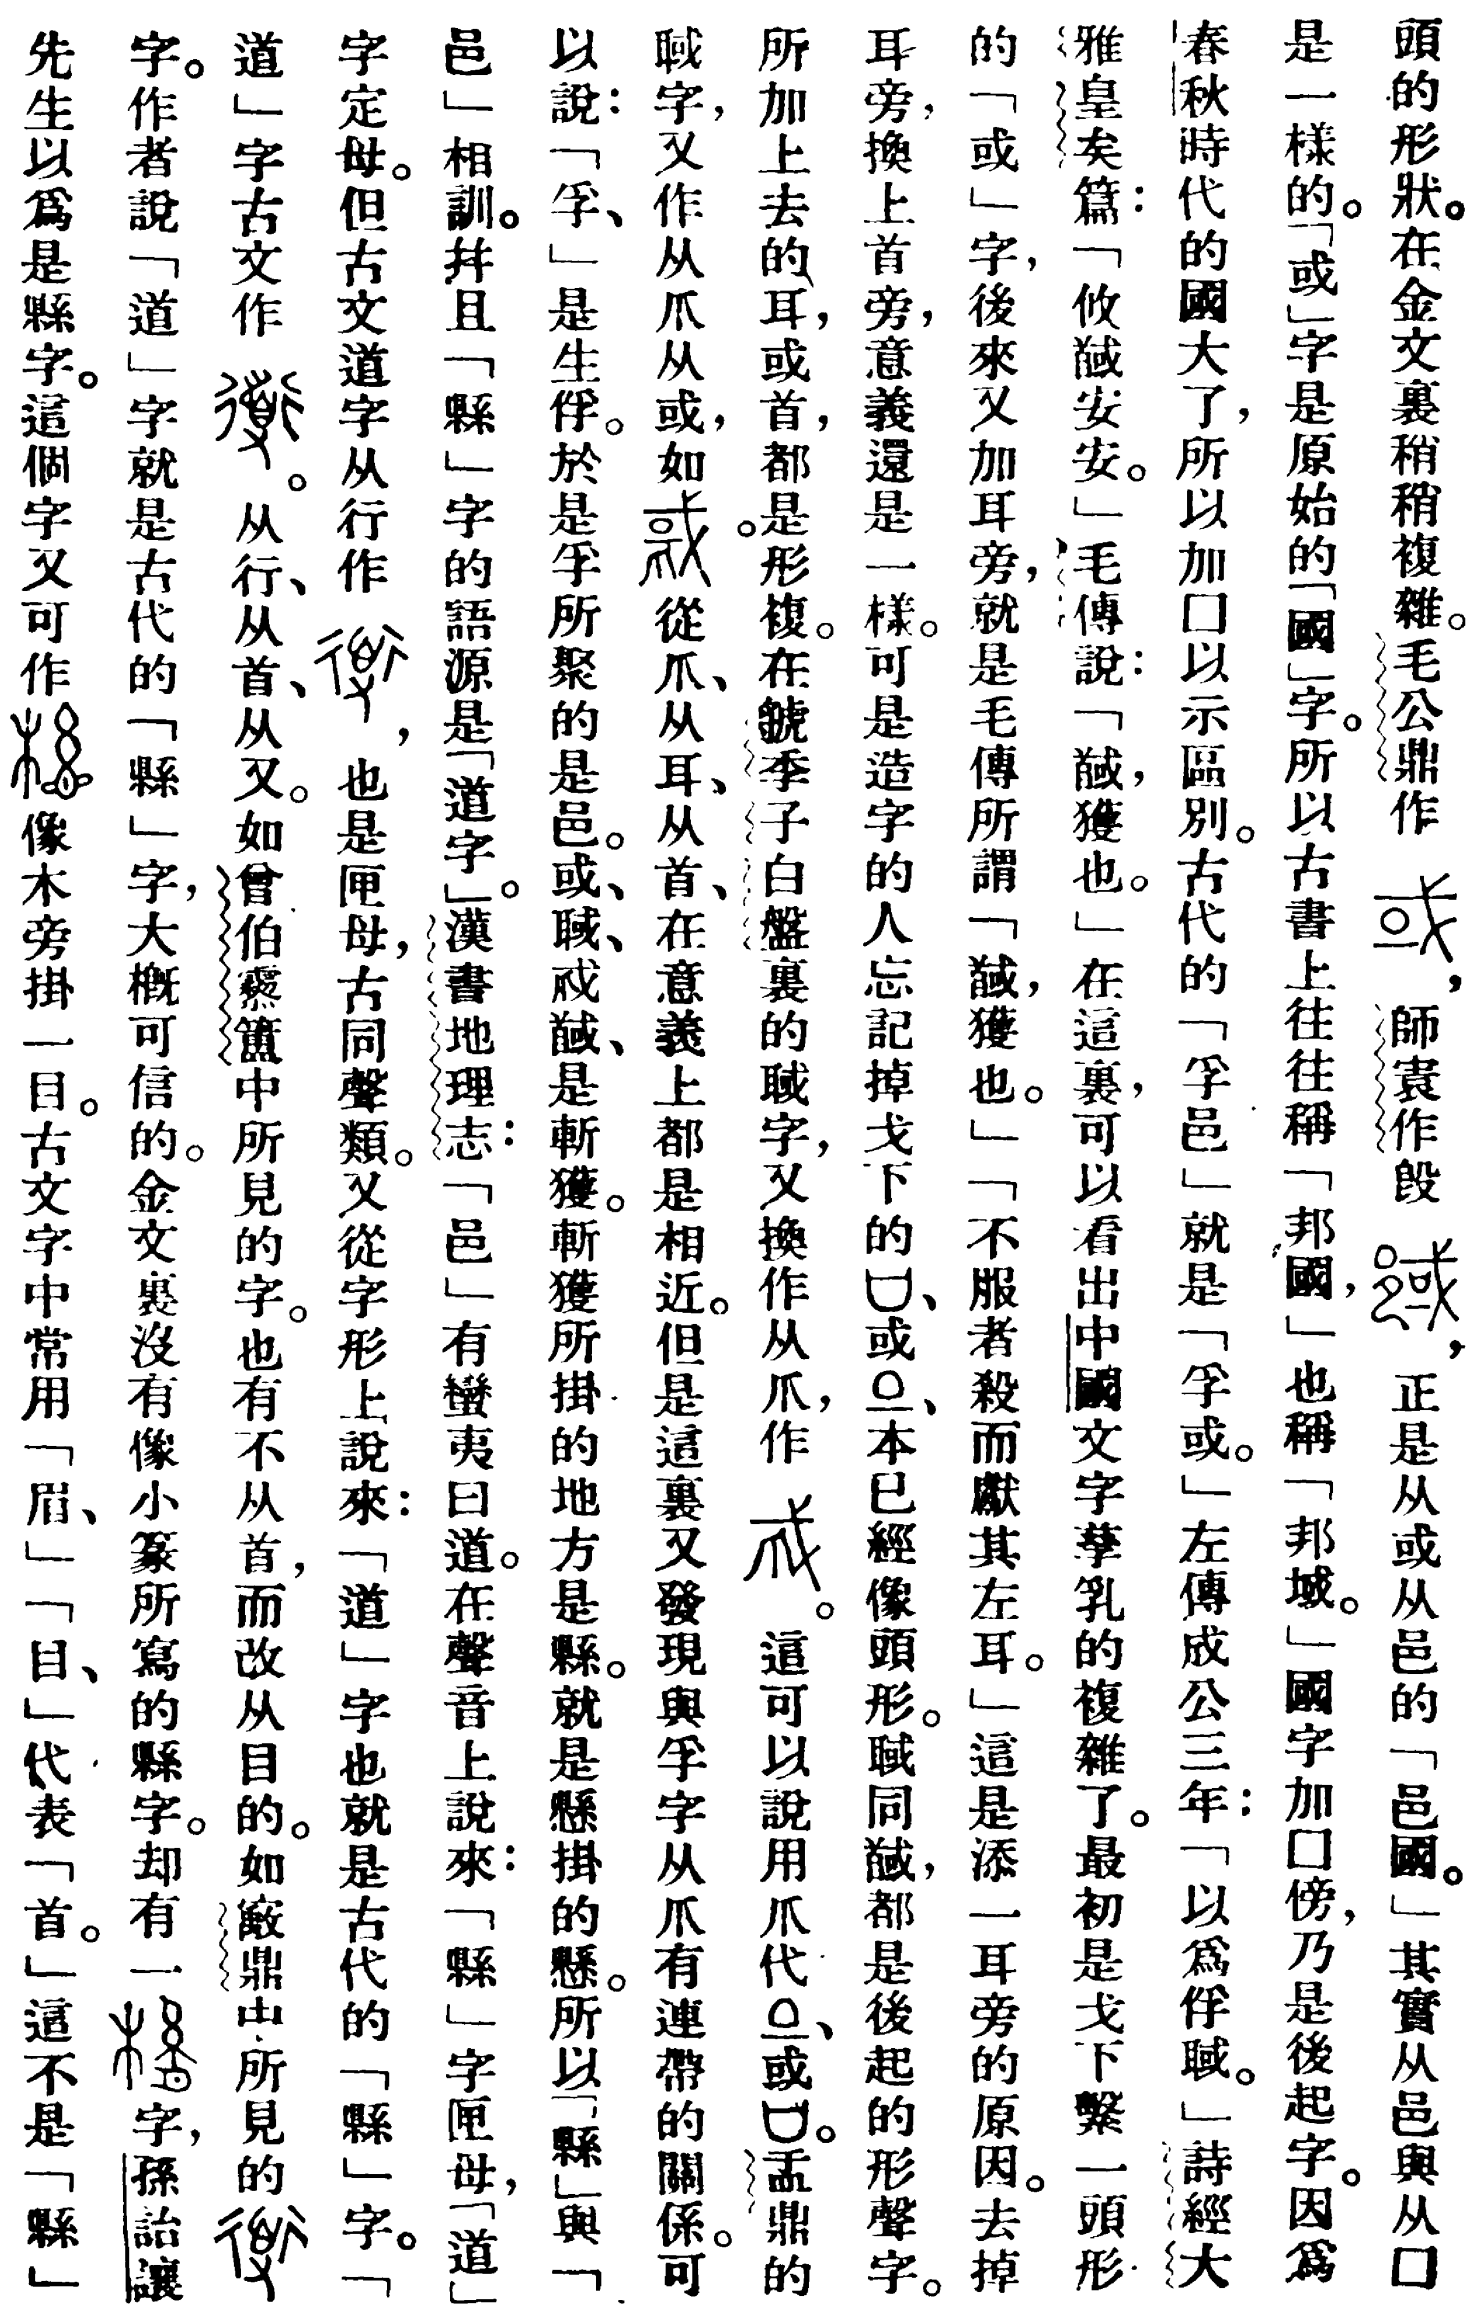 頭的形狀。在金文裏稍稍複雜。毛公鼎作，師㝨作毁，正是从或从邑的「邑國。」其實从邑與从囗
是一樣的。「或」字是原始的「國」字。所以古書上往往稱「邦國，」也稱「邦域。」國字加囗傍，乃是後起字。因爲
春秋時代的國大了，所以加囗以示區別。古代的「孚邑」就是「孚或。」左傳成公三年：「以爲俘聝。」詩經大
雅皇矣篇：「攸馘安安。」毛傳說：「馘，獲也。」在這裏，可以看出中國文字孳乳的複雜了。最初是戈下繫一頭形
的「或」字，後來又加耳旁，就是毛傳所謂「馘，獲也。」「不服者殺而獻其左耳。」這是添一耳旁的原因。去掉
耳旁，換上首旁，意義還是一樣。可是造字的人忘記掉戈下的、或、本已經像頭形。聝同馘，都是後起的形聲字。
所加上去的耳，或首，都是形複。在虢季子白盤裏的聝字，又換作从爪，作。這可以說用爪代、或。盂鼎的
聝字，又作从爪从或，如。從爪、从耳、从首、在意義上都是相近。但是這裏又發現與孚字从爪有連帶的關係。可
以說：「孚、」是生俘。於是孚所聚的是邑。或、聝、馘、是斬獲。斬獲所掛的地方是縣。就是懸掛的懸。所以「縣」與「
邑」相訓。幷且「縣」字的語源是「道字」。漢書地理志：「邑」有蠻夷曰道。在聲音上說來：「縣」字匣母，「道」
字定母。但古文道字从行作，也是匣母，古同聲類。又從字形上說來：「道」字也就是古代的「縣」字。「
道」字古文作。从行、从首、从又。如曾伯簠中所見的字。也有不从首，而改从目的。如鼎中所見的
字。作者說「道」字就是古代的「縣」字，大槪可信的。金文裏沒有像小篆所寫的縣字。却有一字，孫詒讓
先生以爲是縣字。這個字又可作像木旁掛一目。古文字中常用「眉、」「目、」代表「首。」這不是「縣」